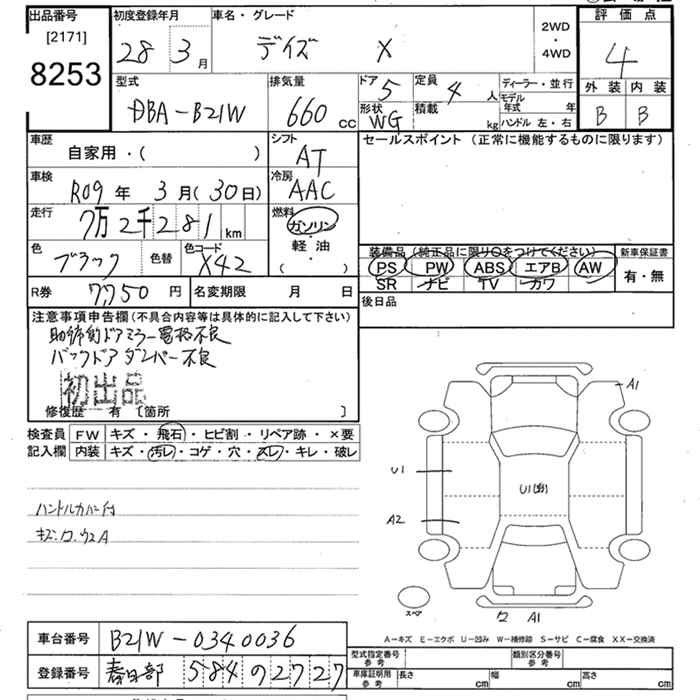 出品番号
[2171]
8253
初度登録年月
28 3 月
車名・グレード
デイズ X
2WD
・
4WD
評価点
4
外装 内装
B B
型式
DBA-B21W
排気量
660 cc
ドア 5
形状 WG
定員 4 人
積載 kg
ディーラー・並行
モデル年式 年
ハンドル 左・右
車歴
自家用・( )
シフト
AT
セールスポイント (正常に機能するものに限ります)
車検
R09 年 3 月 ( 30 日)
冷房
AAC
走行
7万2千281 km
燃料
ガソリン
・
軽油
・
( )
色
ブラック
色替
色コード
X42
装備品 (純正品に限り○をつけてください)
PS PW ABS エアB AW
SR ナビ TV カワ
新車保証書
有・無
R券 7,750 円
名変期限 月 日
後日品
注意事項申告欄 (不具合内容等は具体的に記入して下さい)
助手席ドアミラー電格不良
バックドアダンパー不良
初出品
修復歴 有 〔箇所 〕
検査員
記入欄
FW キズ・飛石・ヒビ割・リペア跡・×要
内装 キズ・汚レ・コゲ・穴・スレ・キレ・破レ
ハンドルカバー付
A1
U1
A2
スペア
A1
A-キズ E-エクボ U-凹み W-補修跡 S-サビ C-腐食 XX-交換済
車台番号 B21W-0340036
登録番号 春日部 584 の 2727
型式指定番号
参考
類別区分番号
参考
車庫証明用
参考
長さ cm
幅 cm
高さ cm